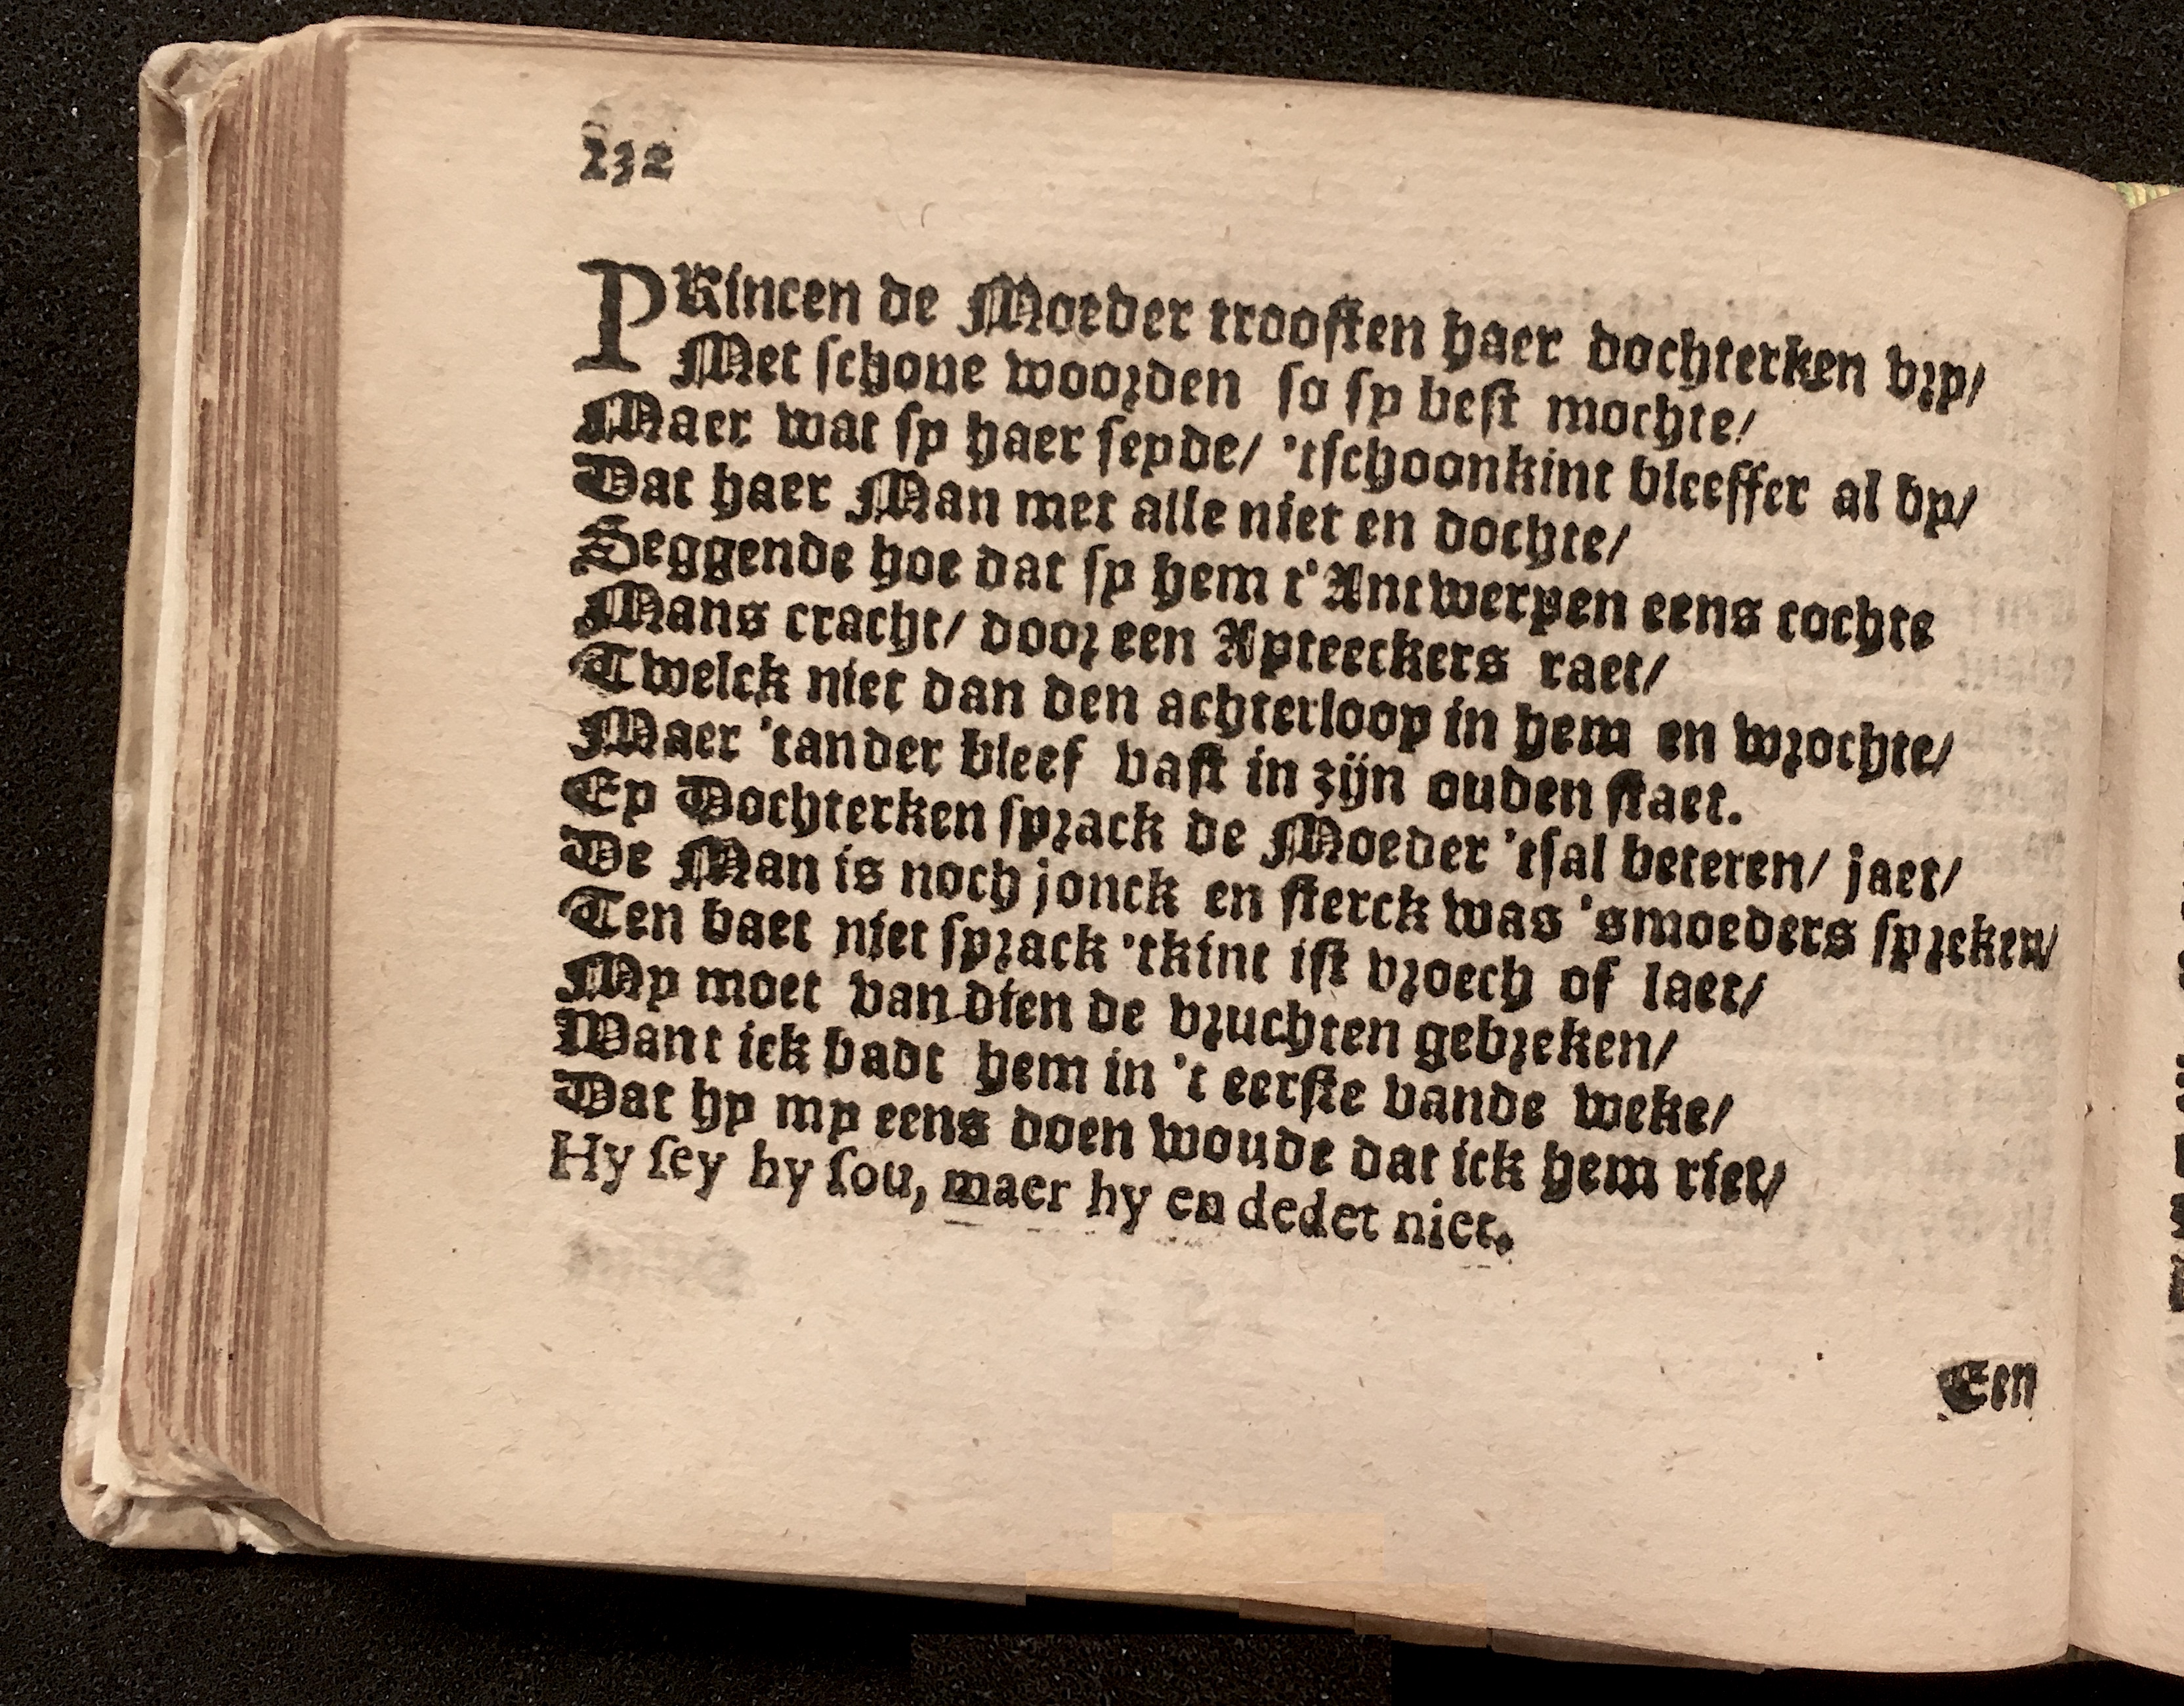 232
PRincen de Moeder troosten haer dochterken vry/
Met schone woorden so sy best mochte/
Maer wat sy haer seyde/ 'tschoonkint bleeffer al by/
Dat haer Man met alle niet en dochte/
Seggende hoe dat sy hem t'Antwerpen eens cochte
Mans cracht/ door een Apteeckers raet/
Twelck niet dan den achterloop in hem en wrochte/
Maer 'tander bleef vast in zijn ouden staet.
Ey Dochterken sprack de Moeder 'tsal beteren/ jaet/
De Man is noch jonck en sterck was 'smoeders spreken/
Ten baet niet sprack 'tkint ist vroech of laet/
My moet van dien de vruchten gebreken/
Want ick badt hem in 't eerste vande weke/
Dat hy my eens doen woude dat ick hem riet/
Hy sey hy sou, maer hy en dedet niet.
Een